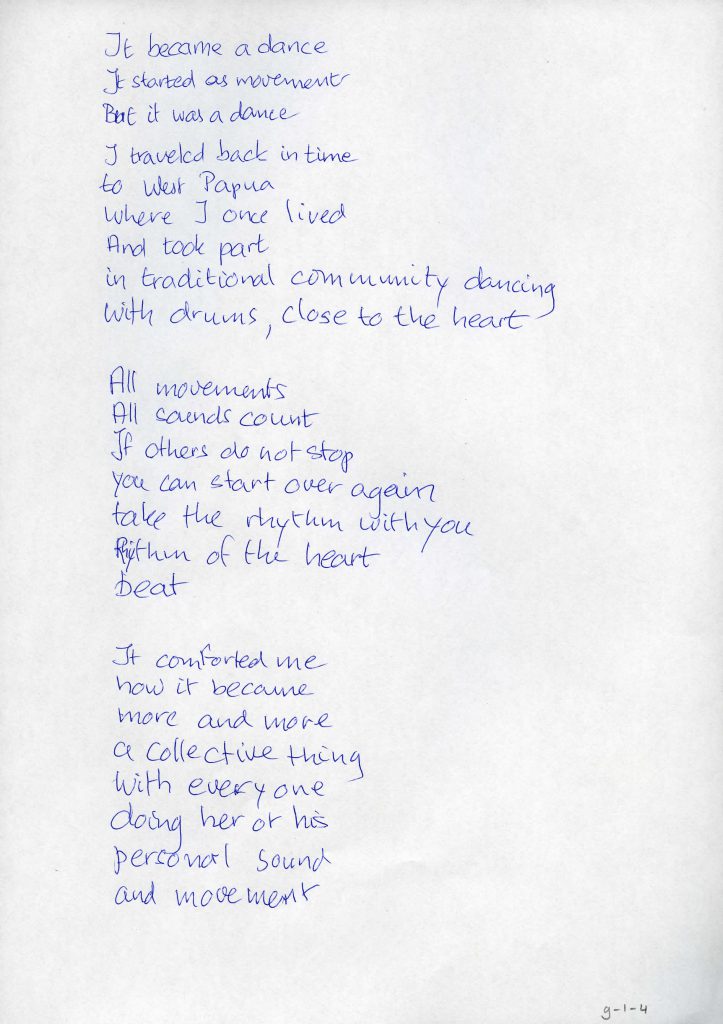 It became a dance
It started as movement
But it was a dance
I traveled back in time
to West Papua
where I once lived
And took part
in traditional community dancing
with drums, close to the heart
All movements
All sounds count
If others do not stop
you can start over again
take the rhythm with you
Rhythm of the heart
beat
It comforted me
how it became
more and more
a collective thing
With everyone
doing her or his
personal sound
and movement
g-1-4